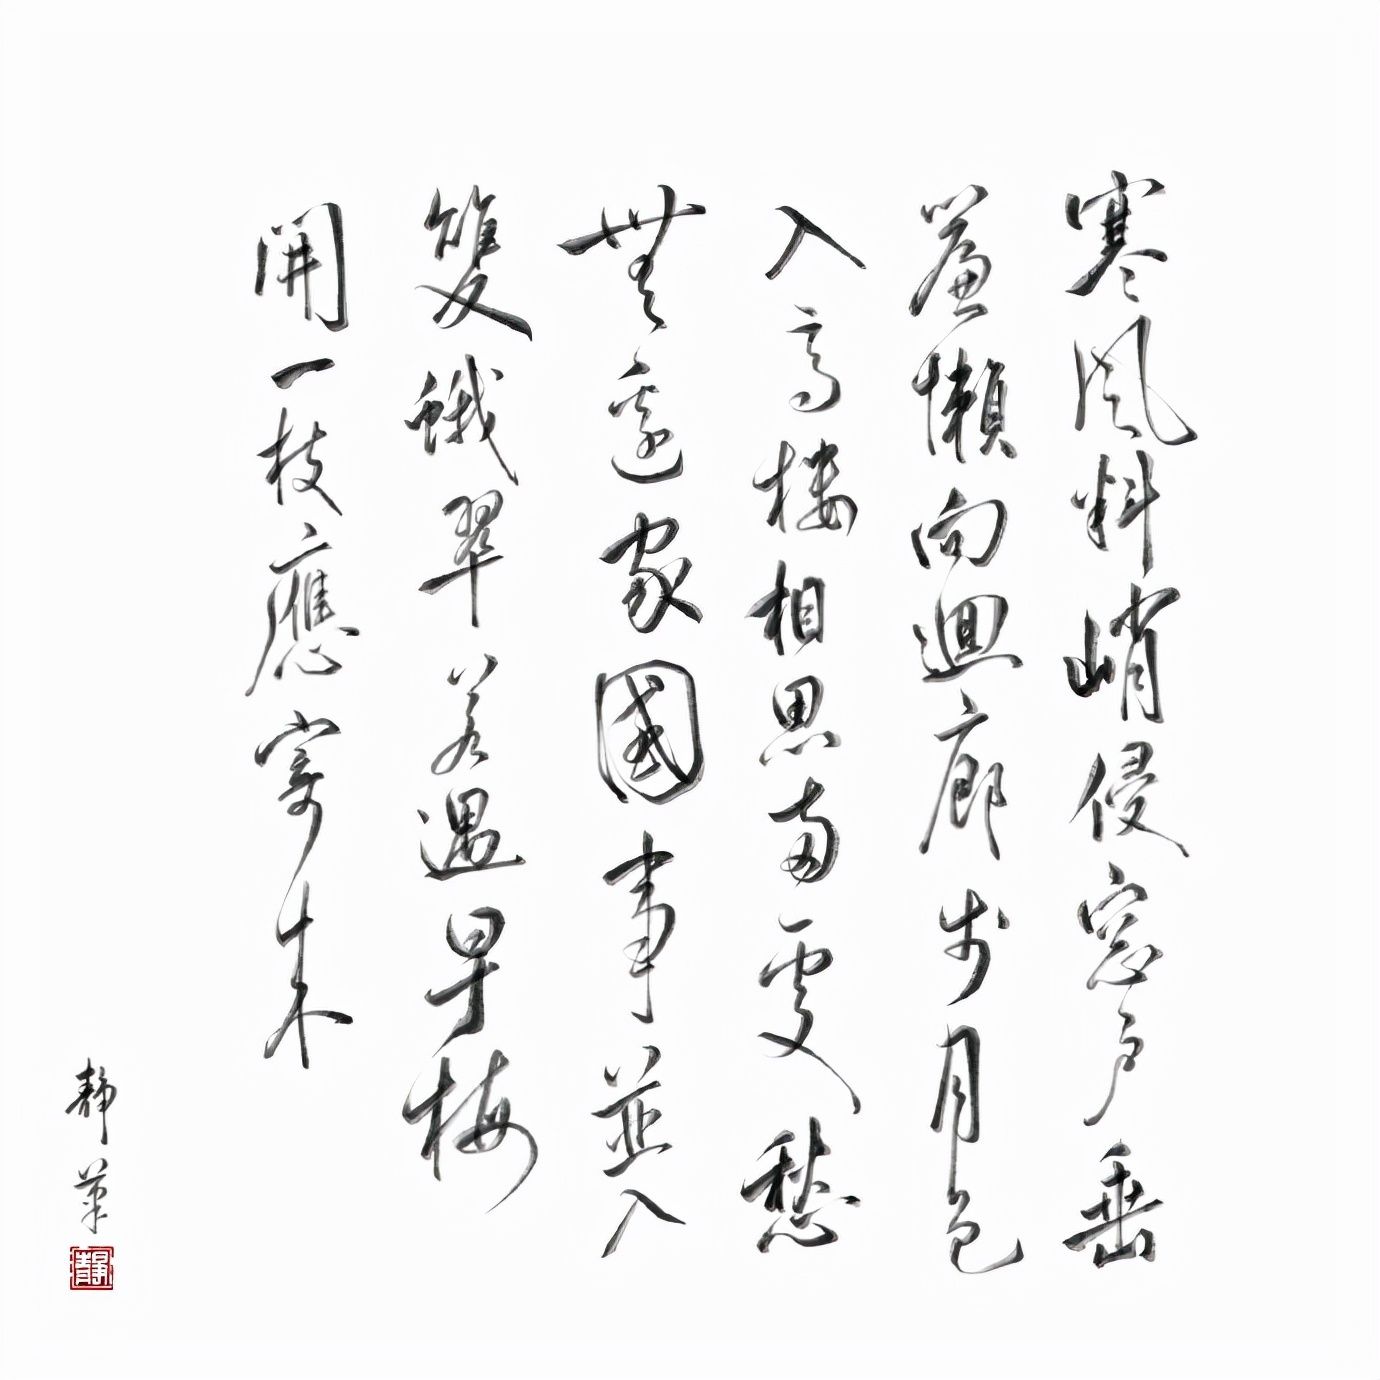 寒風料峭侵窓戶垂
簾懶向迴廊步月色
入高樓相思兩處愁
無邊家國事並入
雙蛾翠若遇早梅
開一枝應寄來
靜葦
靜